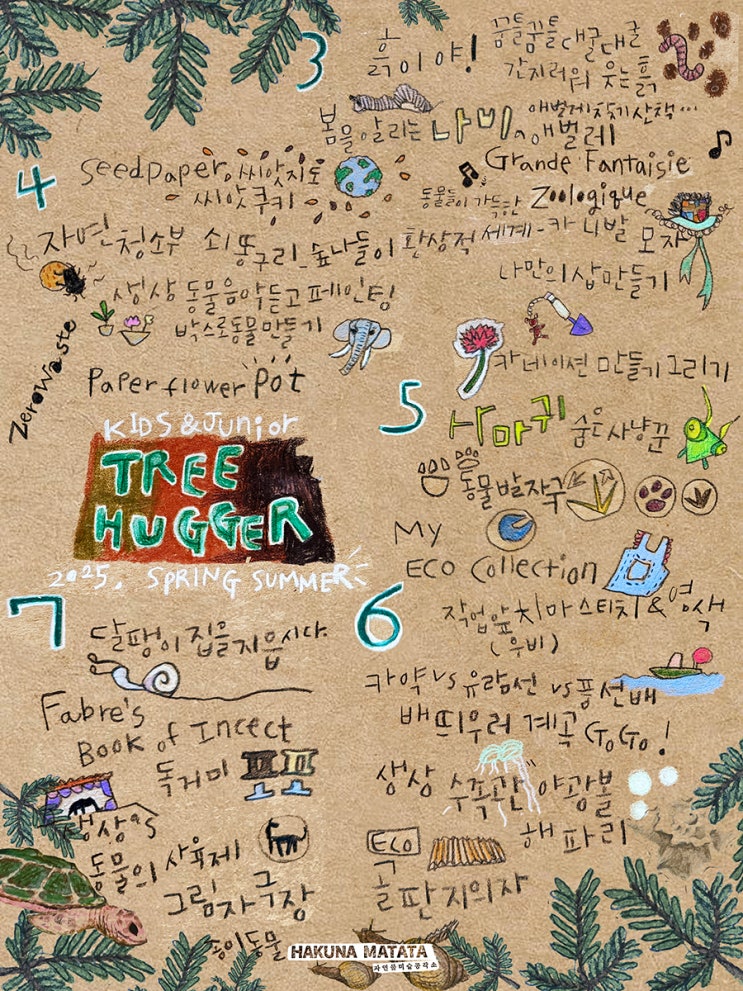 3
흙이야!
꿈틀꿈틀 대굴대굴
간지러워 웃는흙
봄을 알리는 나비 a 애벌레
애벌레찾기산책...
4
seedpaper a 씨앗지도
씨앗쿠키
Grande Fantaisie
Zoologique
동물들이 가득한
환상적 세계-카니발 모자
자연청소부 쇠똥구리_숲나들이
나만의 삽만들기
생상 동물음악듣고페인팅
박스로동물만들기
Zerowaste
paper flower pot
카네이션 만들기 그리기
5
사마귀 숨은사냥꾼
동물발자국
KIDS & Junior
TREE
HUGGER
2025. SPRING SUMMER
My
ECO Collection
작업앞치마스티치&염색
(우비)
6
카약 vs 유람선 vs 풍선배
배띄우러 계곡 GoGo!
생상 수족관 야광볼
해파리
Eco
골판지의자
7
달팽이집을지읍시다.
Fabre's
Book of Insect
독거미
생상's
동물의 사육제
그림자극장
종이동물
HAKUNA MATATA
자연꿈미술공작소